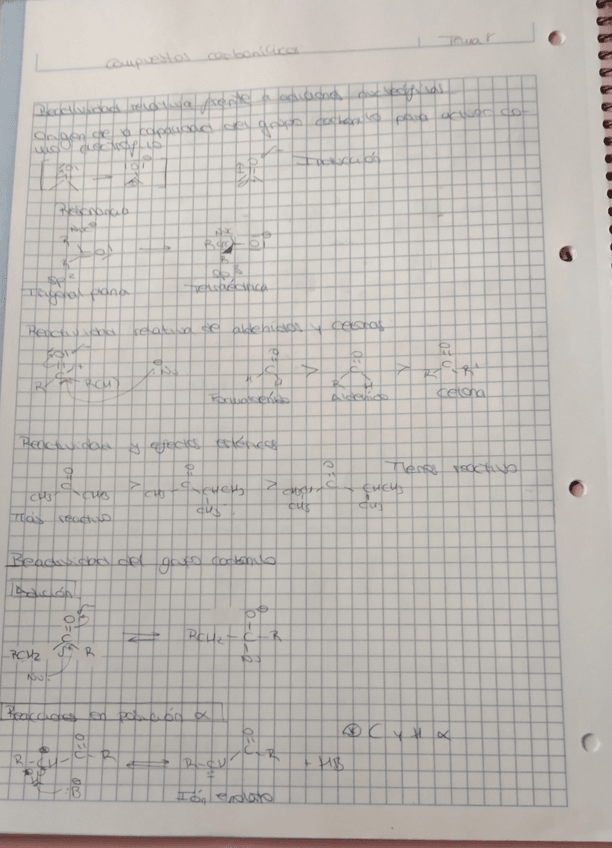 Compuestos carbonílicos Tema 1
Reactividad relativa frente a adiciones nucleofílicas.
Origen de la capacidad del grupo carbonilo para actuar co-
mo electrófilo
Inducción
Resonancia
sp² sp³
Trigonal plana Tetraédrica
Reactividad relativa de aldehídos y cetonas
R R(H) Nu
H H > R H > R R'
Formaldehído aldehído cetona
Reactividad y efectos estéricos
Menos reactivo
CH3 CH3 > CH3 CHCH3 > CHCH3
CH3 CH3 CH3
Más reactivo
Reactividad del grupo carbonilo
Adición
RCH2 R ⇌ RCH2-C-R
Nu: Nu
Reacciones en posición α
C y H α
R-CH-C-R ⇌ R-CH-C-R + HB
:B
Ión enolato